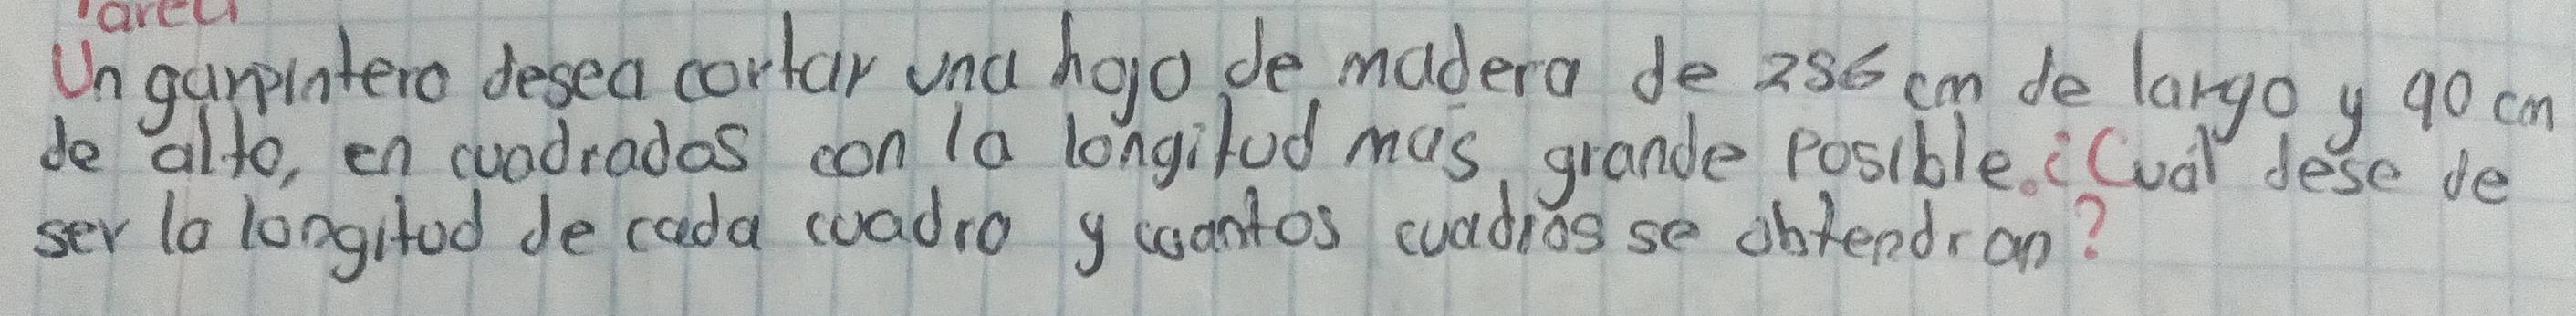 Tarea
Un garpintero desea cortar una hojo de madera de 256 cm de largo y 90 cm
de alto, en cuadrados con la longitud mas grande posible. ¿Cual dese de
ser la longitud de cada cuadro y cuantos cuadros se obtendran?